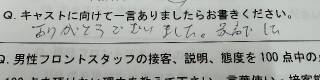 Q. キャストに向けて一言ありましたらお書きください。
ありがとうございました。最高でした
Q. 男性フロントスタッフの接客、説明、態度を100点中の